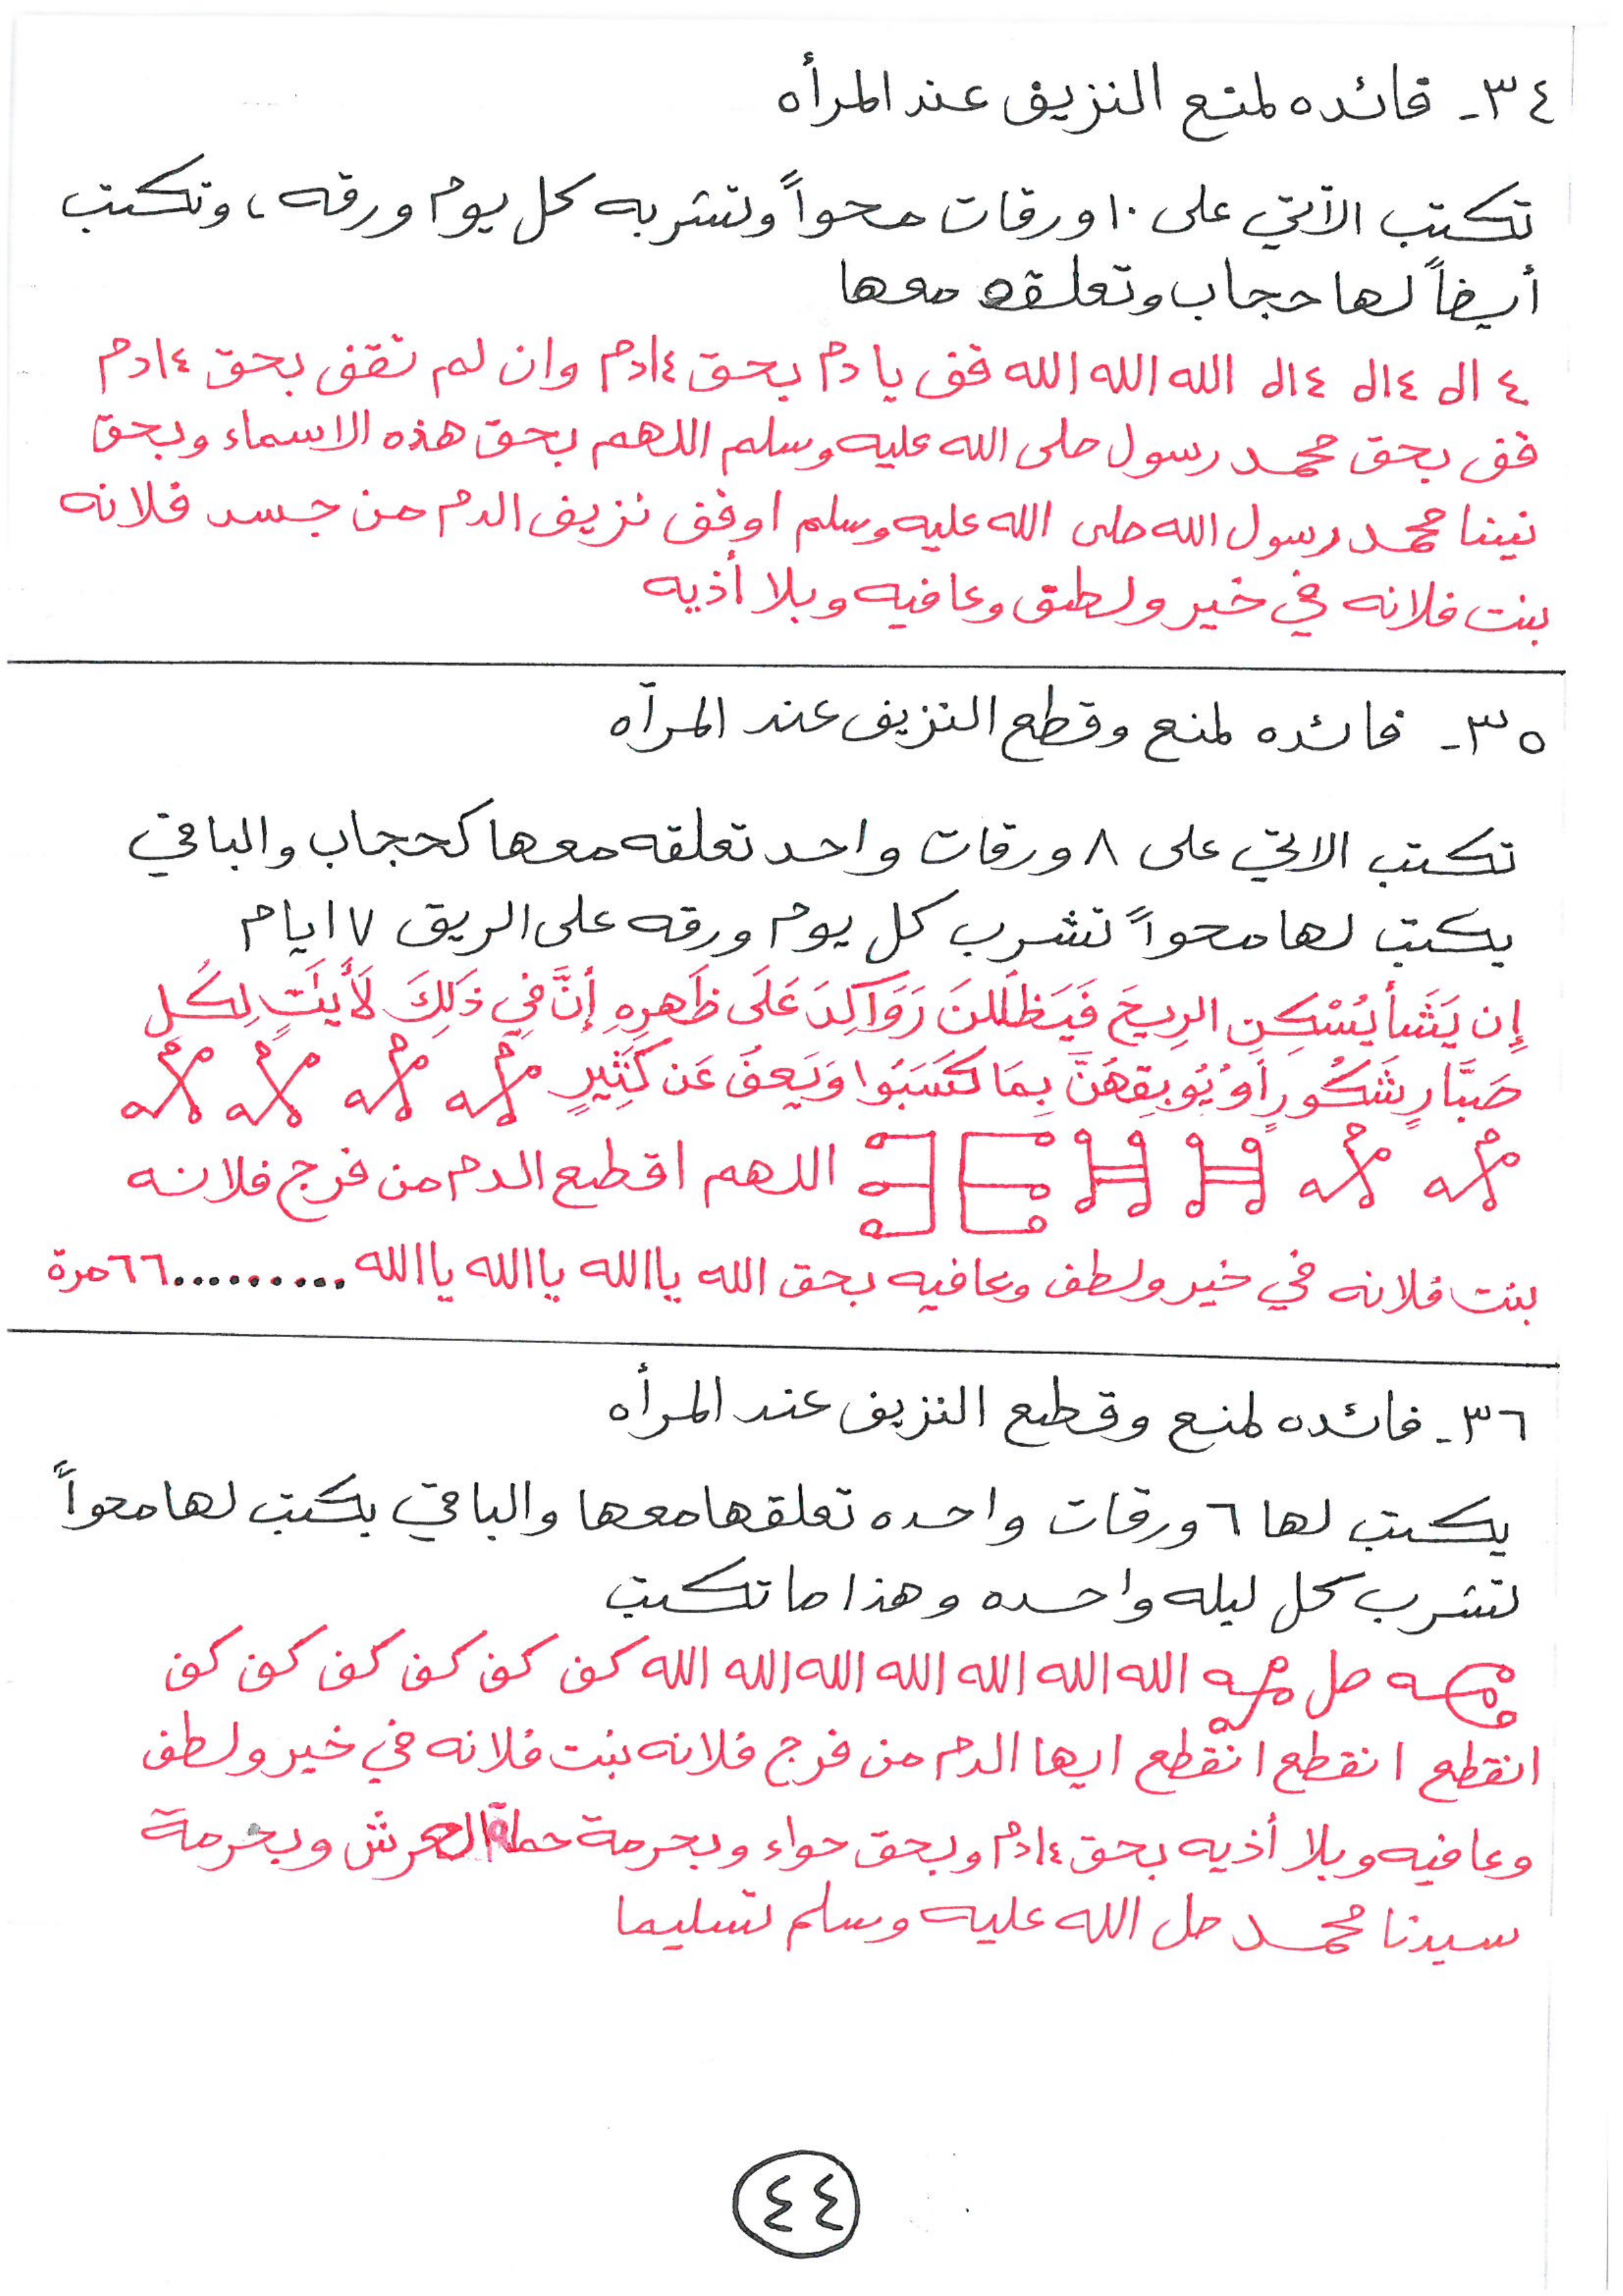 ٣٤- فائده لمنع النزيف عند المرأه
تكتب الآتي على ١٠ ورقات محواً وتشربه كل يوم ورقه، وتكتب
أيضاً لها حجاب وتعلقه معها
٤ اله ٤ اله ٤ اله الله الله الله قف يا دم بحق ٤ ادم وان لم تقف بحق ٤ ادم
قف بحق محمد رسول صلى الله عليه وسلم اللهم بحق هذه الاسماء وبحق
نبينا محمد رسول الله صلى الله عليه وسلم اوقف نزيف الدم من جسد فلانه
بنت فلانه في خير ولطف وعافيه وبلا أذيه
٣٥- فائده لمنع وقطع النزيف عند المرآه
تكتب الاتي على ٨ ورقات واحد تعلقه معها كحجاب والباقي
يكتب لها محواً تشرب كل يوم ورقه على الريق ٧ ايام
إِن يَشَأ يُسْكِنِ الرِيحَ فَيَظلَلنَ رَوَاكِدَ عَلَى ظَهرِهِ إنَّ فِي ذَلِكَ لَأَيَتٍ لِكُلِ
صَبَّارٍ شَكُورٍ أَو يُوبِقِهُنَّ بِمَا كَسَبُوا وَيَعفُ عَن كَثِيرٍ
اللهم اقطع الدم من فرج فلانه
بنت فلانه في خير ولطف وعافيه بحق الله ياالله ياالله ياالله .......... ٦٦ مرة
٣٦- فائده لمنع وقطع النزيف عند المرأه
يكتب لها ٦ ورقات واحده تعلقها معها والباقي يكتب لها محواً
تشرب كل ليله واحده وهذا ما تكتب
صل الله الله الله الله الله الله الله كف كف كف كف كف كف
انقطع انقطع انقطع ايها الدم من فرج فلانه بنت فلانه في خير ولطف
وعافيه وبلا أذيه بحق ٤ ادم وبحق حواء وبحرمة حملة العرش وبحرمة
سيدنا محمد صل الله عليه وسلم تسليما
٤٤